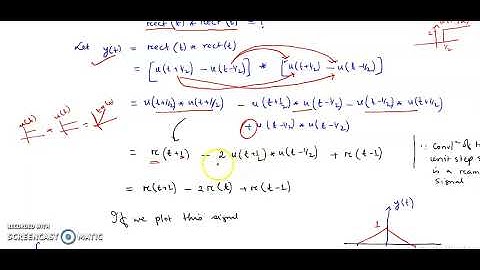 rect(t) * rect(t) = ?
Let y(t) = rect(t) * rect(t)
= [u(t+1/2) - u(t-1/2)] * [u(t+1/2) - u(t-1/2)]
= u(t+1/2) * u(t+1/2) - u(t+1/2) * u(t-1/2) - u(t-1/2) * u(t+1/2)
+ u(t-1/2) * u(t-1/2)
u(t) * u(t) =
= r(t+1) - 2 u(t+1) * u(t-1/2) + r(t-1)
= r(t+1) - 2r(t) + r(t-1)
∵ Convlⁿ of
unit step s
is a ram
signal
If we plot this signal
y(t)
1
1/2
RECORDED WITH
SCREENCAST MATIC